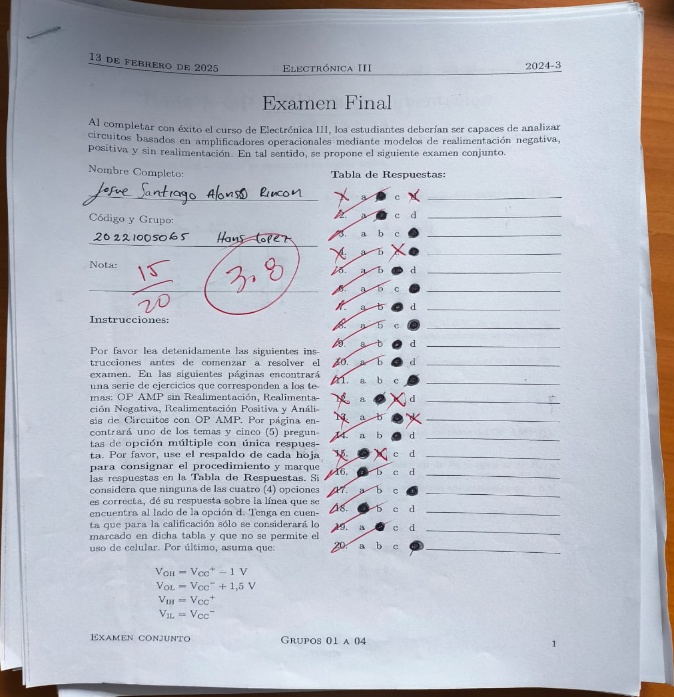 13 DE FEBRERO DE 2025 ELECTRÓNICA III 2024-3
Examen Final
Al completar con éxito el curso de Electrónica III, los estudiantes deberían ser capaces de analizar
circuitos basados en amplificadores operacionales mediante modelos de realimentación negativa,
positiva y sin realimentación. En tal sentido, se propone el siguiente examen conjunto.
Nombre Completo:
Josue Santiago Alonso Rincon
Código y Grupo:
20221005065 Hans Lopez
Nota:
15
20
3.8
Instrucciones:
Por favor lea detenidamente las siguientes ins-
trucciones antes de comenzar a resolver el
examen. En las siguientes páginas encontrará
una serie de ejercicios que corresponden a los te-
mas: OP AMP sin Realimentación, Realimenta-
ción Negativa, Realimentación Positiva y Análi-
sis de Circuitos con OP AMP. Por página en-
contrará uno de los temas y cinco (5) pregun-
tas de opción múltiple con única respues-
ta. Por favor, use el respaldo de cada hoja
para consignar el procedimiento y marque
las respuestas en la Tabla de Respuestas. Si
considera que ninguna de las cuatro (4) opciones
es correcta, dé su respuesta sobre la línea que se
encuentra al lado de la opción d. Tenga en cuen-
ta que para la calificación sólo se considerará lo
marcado en dicha tabla y que no se permite el
uso de celular. Por último, asuma que:
V_OH = V_CC⁺ − 1 V
V_OL = V_CC⁻ + 1,5 V
V_IH = V_CC⁺
V_IL = V_CC⁻
Tabla de Respuestas:
a c
2. a c d
3. a b c
a b
a b d
6. a b c
a b d
8. a b c
9. a b d
10. a b d
11. a b c
a d
a b
14. a b d
c d
16. b c d
17. a b c
18. b c d
19. a c d
20. a b c
EXAMEN CONJUNTO GRUPOS 01 A 04 1